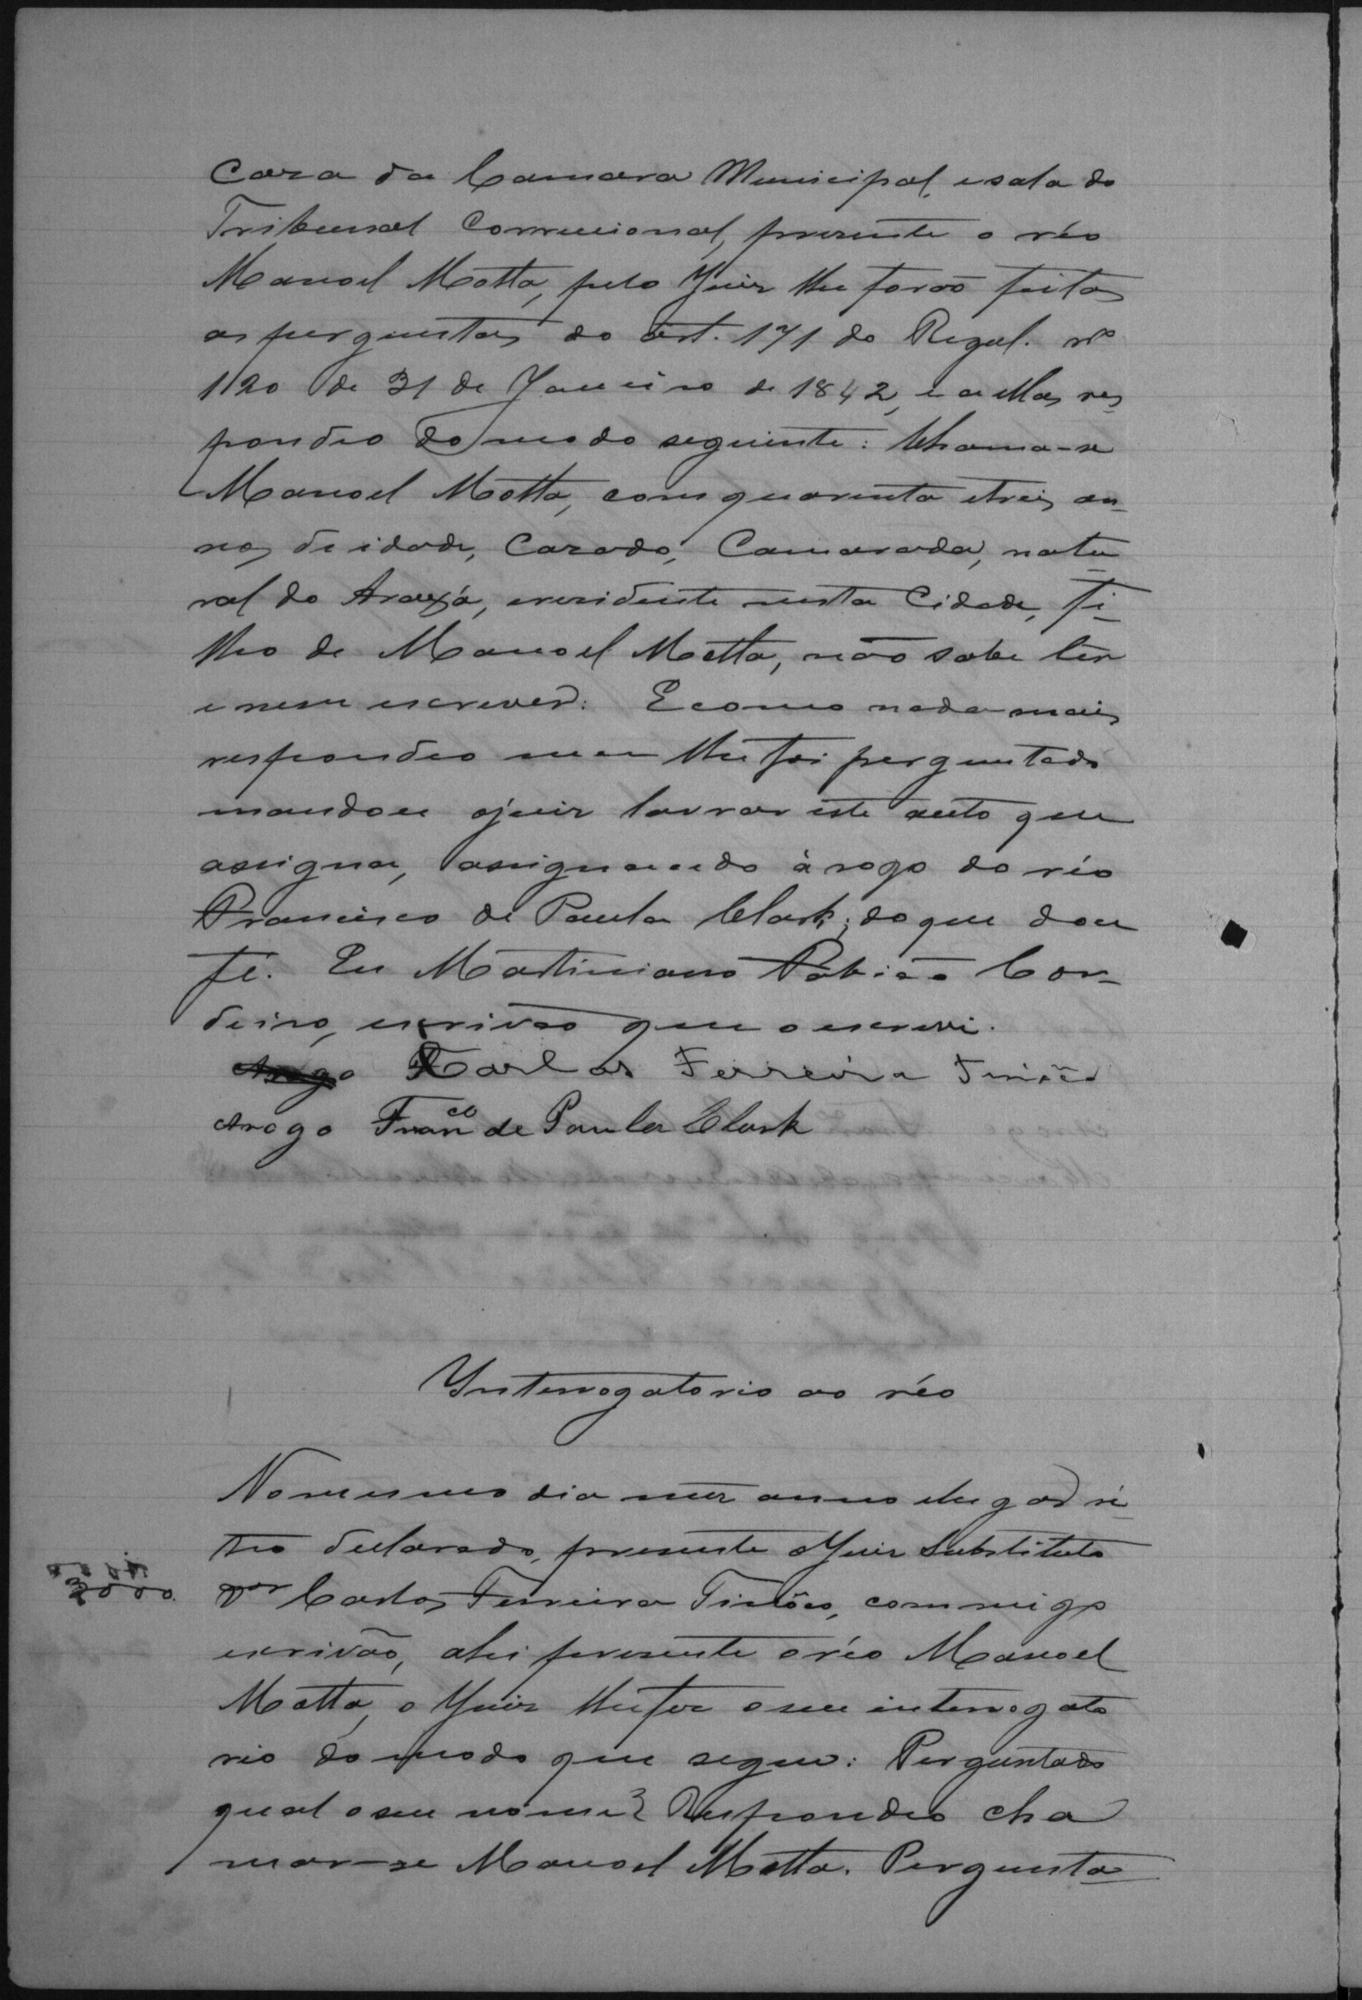 Caza da Camara Municipal, e sala do
Tribunal Correcional, prezente o réo
Manoel Motta, pelo Juiz lhe forão feitas
as perguntas do art. 171 do Regul. nº
120 de 31 de Janeiro de 1842, e a ellas res
pondeo do modo seguinte: Chama-se
Manoel Motta, com quarenta e treis an-
nos de idade, Cazado, Camarada, natu
ral do Araxá, e rezidente nesta Cidade, fi-
lho de Manoel Motta, não sabe ler
e nem escrever. E como nada mais
respondeo nem lhe foi perguntado
mandou o juiz lavrar este auto que
assigna, assignando à rogo do réo
Francisco de Paula Clark; do que dou
fé. Eu Martiniano Fabião Cor-
deiro, escrivão que o escrevi.
Carlos Ferreira Tinôco
Arogo Franco de Paula Clark
Interrogatorio ao réo
No mesmo dia mez anno e lugar re-
tro declarado, prezente o Juiz Substituto
Dor Carlos Ferreira Tinôco, commigo
escrivão, ahi prezente o réo Manoel
Motta, o Juiz lhe fez o seu interrogato
rio do modo que segue: Perguntado
qual o seu nome? Respondeo cha
mar-se Manoel Motta. Pergunta